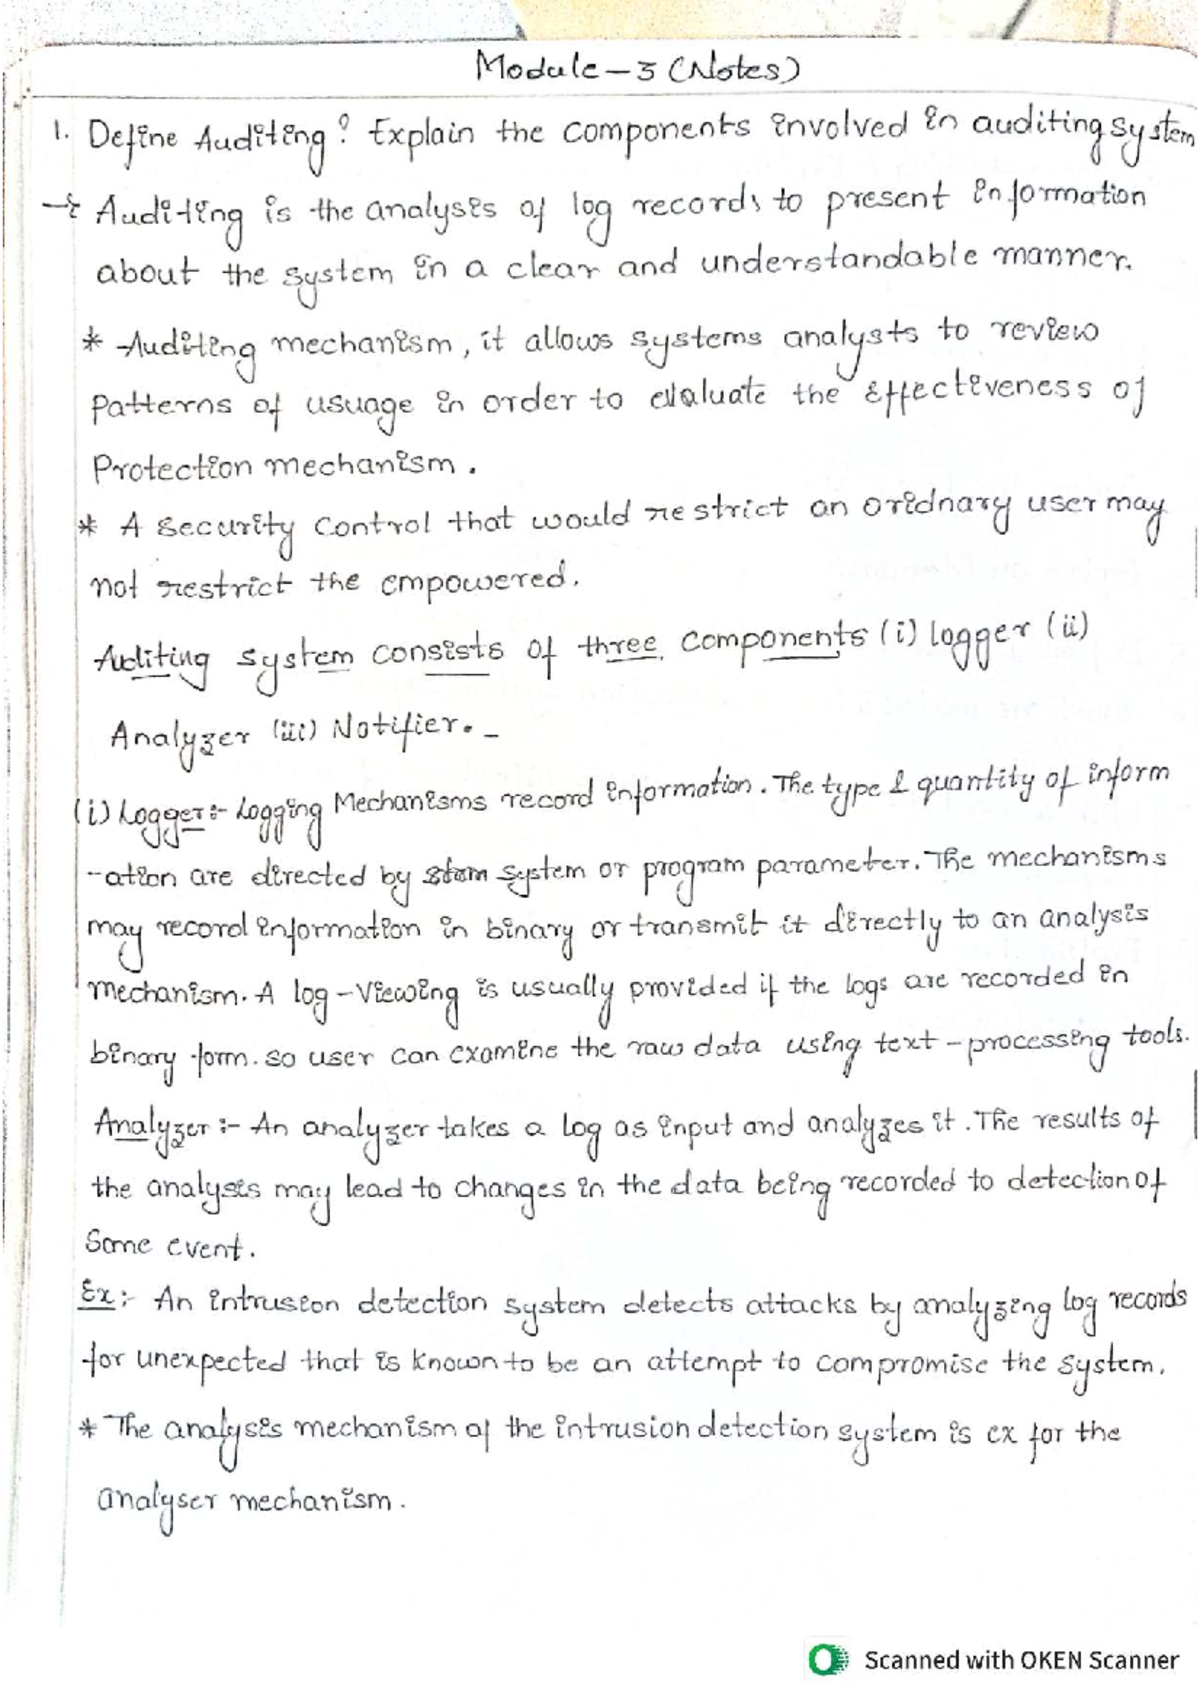 Module-3 (Notes)
1. Define Auditing? Explain the components involved in auditing system
→ Auditing is the analysis of log records to present information
about the system in a clear and understandable manner.
* Auditing mechanism, it allows systems analysts to review
patterns of usuage in order to evaluate the effectiveness of
Protection mechanism.
* A security control that would restrict an oridnary user may
not restrict the empowered.
Auditing system consists of three components (i) logger (ii)
Analyzer (iii) Notifier. -
(i) Logger:- Logging Mechanisms record information. The type & quantity of inform
-ation are directed by system or program parameter. The mechanisms
may record information in binary or transmit it directly to an analysis
mechanism. A log-viewing is usually provided if the logs are recorded in
binary form. so user can examine the raw data using text-processing tools.
Analyzer:- An analyzer takes a log as input and analyzes it. The results of
the analysis may lead to changes in the data being recorded to detection of
Some event.
Ex:- An intrusion detection system detects attacks by analyzing log records
for unexpected that is known to be an attempt to compromise the system.
* The analysis mechanism of the intrusion detection system is ex for the
analyser mechanism.
Scanned with OKEN Scanner